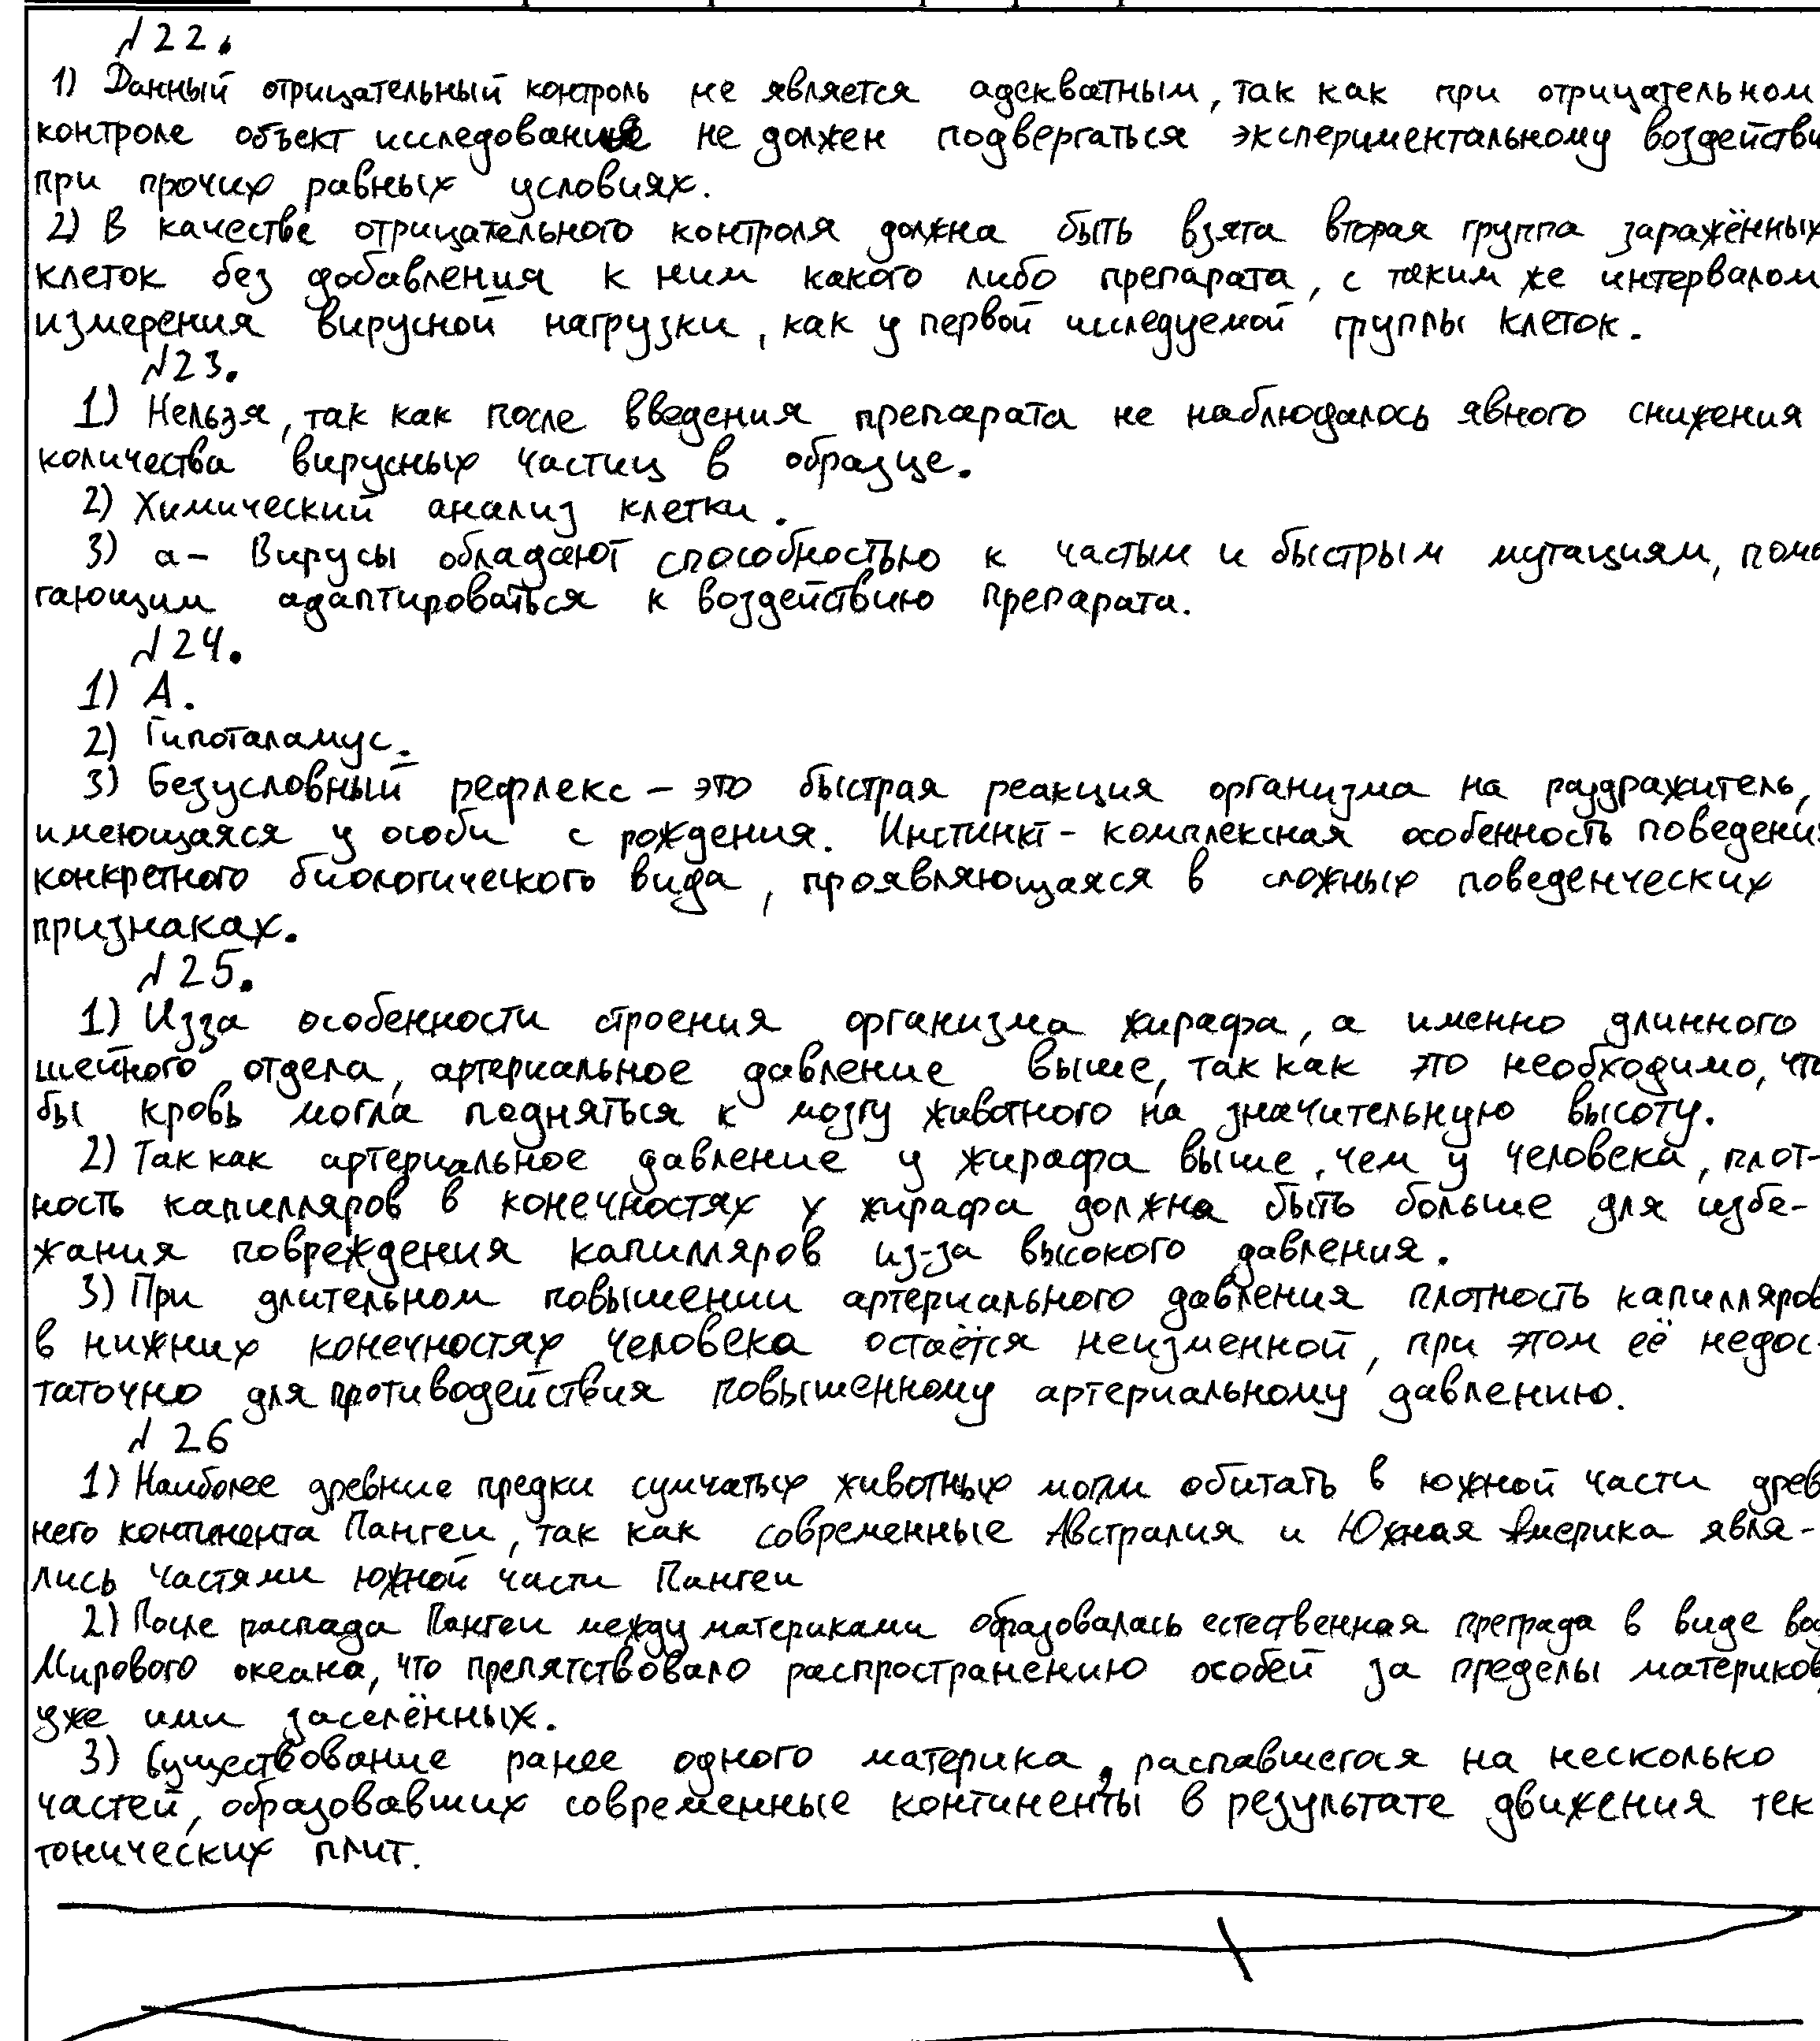 №22.
1) Данный отрицательный контроль не является адекватным, так как при отрицательном
контроле объект исследования не должен подвергаться экспериментальному воздействи
при прочих равных условиях.
2) В качестве отрицательного контроля должна быть взята вторая группа заражённых
клеток без добавления к ним какого либо препарата, с таким же интервалом
измерения вирусной нагрузки, как у первой исследуемой группы клеток.
№23.
1) Нельзя, так как после введения препарата не наблюдалось явного снижения
количества вирусных частиц в образце.
2) Химический анализ клетки.
3) а – Вирусы обладают способностью к частым и быстрым мутациям, помо
гающим адаптироваться к воздействию препарата.
№24.
1) А.
2) Гипоталамус.
3) Безусловный рефлекс – это быстрая реакция организма на раздражитель,
имеющаяся у особи с рождения. Инстинкт - комплексная особенность поведения
конкретного биологического вида, проявляющаяся в сложных поведенческих
признаках.
№25.
1) Изза особенности строения организма жирафа, а именно длинного
шейного отдела, артериальное давление выше, так как это необходимо, что
бы кровь могла подняться к мозгу животного на значительную высоту.
2) Так как артериальное давление у жирафа выше, чем у человека, плот-
ность капилляров в конечностях у жирафа должна быть больше для избе-
жания повреждения капилляров из-за высокого давления.
3) При длительном повышении артериального давления плотность капилляров
в нижних конечностях человека остаётся неизменной, при этом её недос-
таточно для противодействия повышенному артериальному давлению.
№26
1) Наиболее древние предки сумчатых животных могли обитать в южной части древ
него континента Пангеи, так как современные Австралия и Южная Америка явля-
лись частями южной части Пангеи
2) После распада Пангеи между материками образовалась естественная преграда в виде вод
Мирового океана, что препятствовало распространению особей за пределы материков,
уже ими заселённых.
3) Существование ранее одного материка, распавшегося на несколько
частей, образовавших современные континенты в результате движения тек
тонических плит.